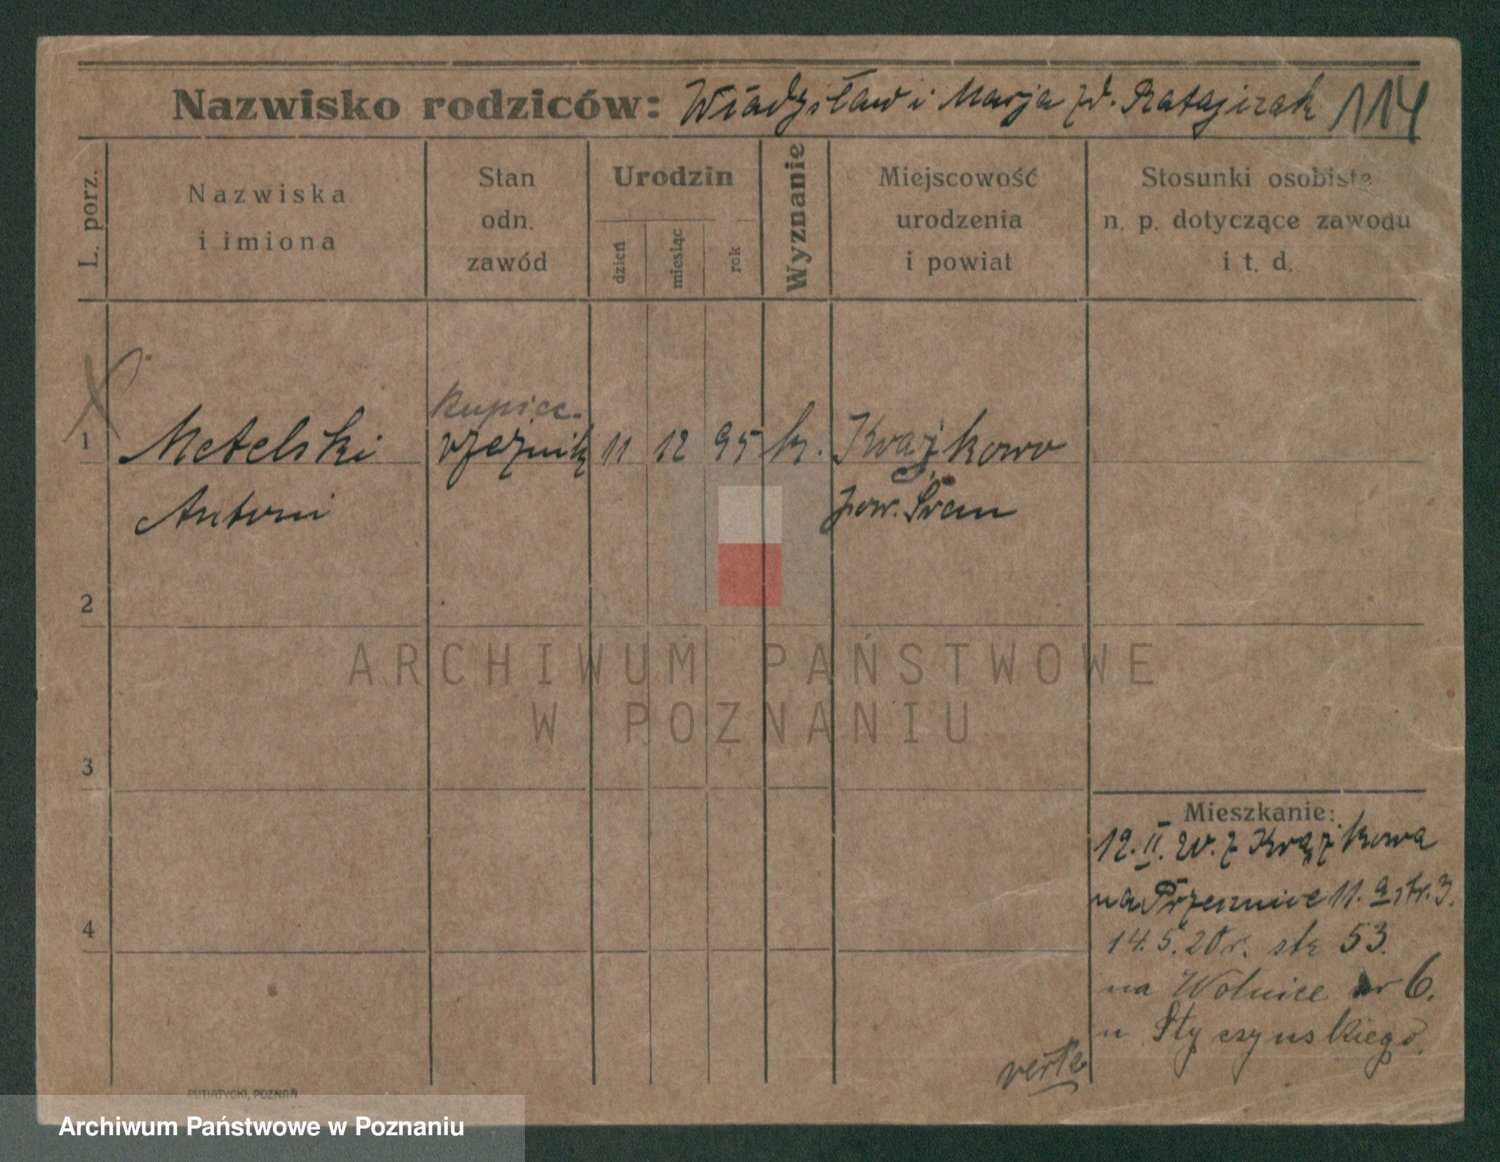 Nazwisko rodziców: Władysław i Marja zd. Ratajczak 114
L. porz.
Nazwiska
i imiona
Stan
odn.
zawód
Urodzin
dzień
miesiąc
rok
Wyznanie
Miejscowość
urodzenia
i powiat
Stosunki osobiste
n. p. dotyczące zawodu
i t. d.
kupiec
1 Metelski rzeźnik 11 12 95 k. Książkowo
Antoni pow. Śrem
2
ARCHIWUM PAŃSTWOWE
W POZNANIU
3
Mieszkanie:
12.II.20. z
na 11. a, str. 3.
4
14.5.20 r. str 53.
na Wolnice nr 6.
u Styczyńskiego.
verte
PUTIATYCKI, POZNAŃ
Archiwum Państwowe w Poznaniu